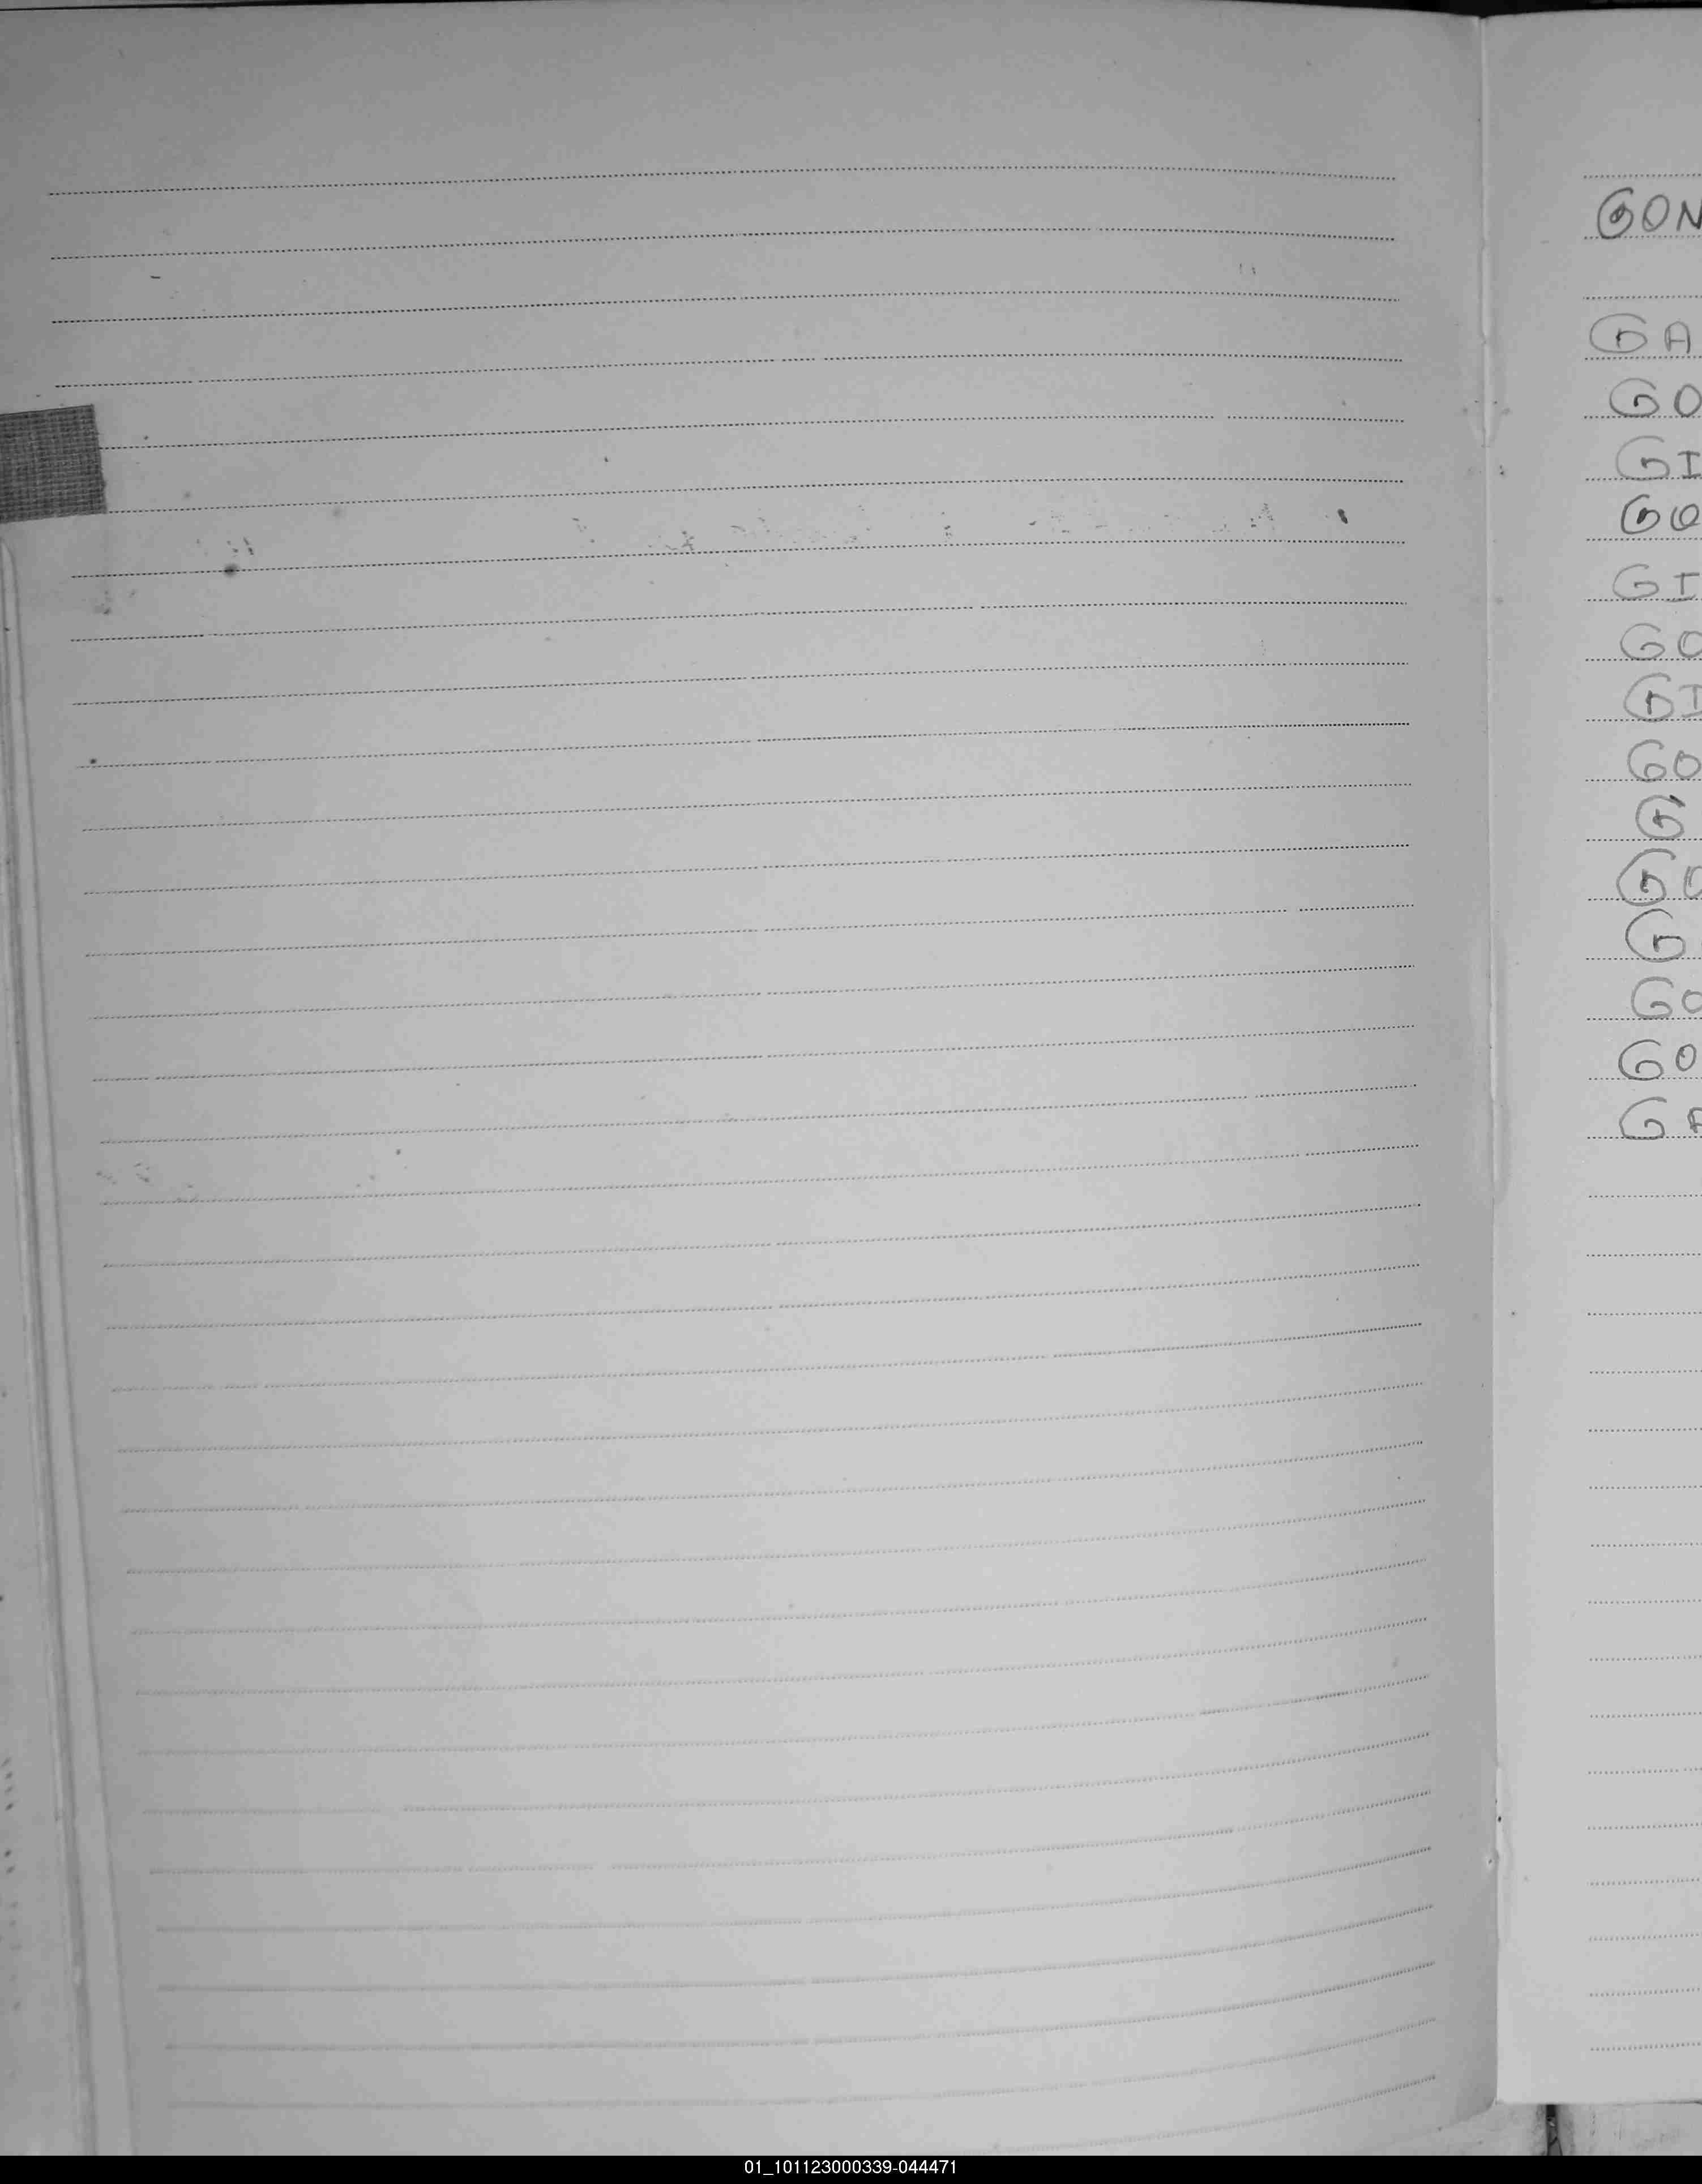 GON
GA
GO
GI
GI
GO
GI
GO
G
GO
G
GO
GO
GA
01_101123000339-044471